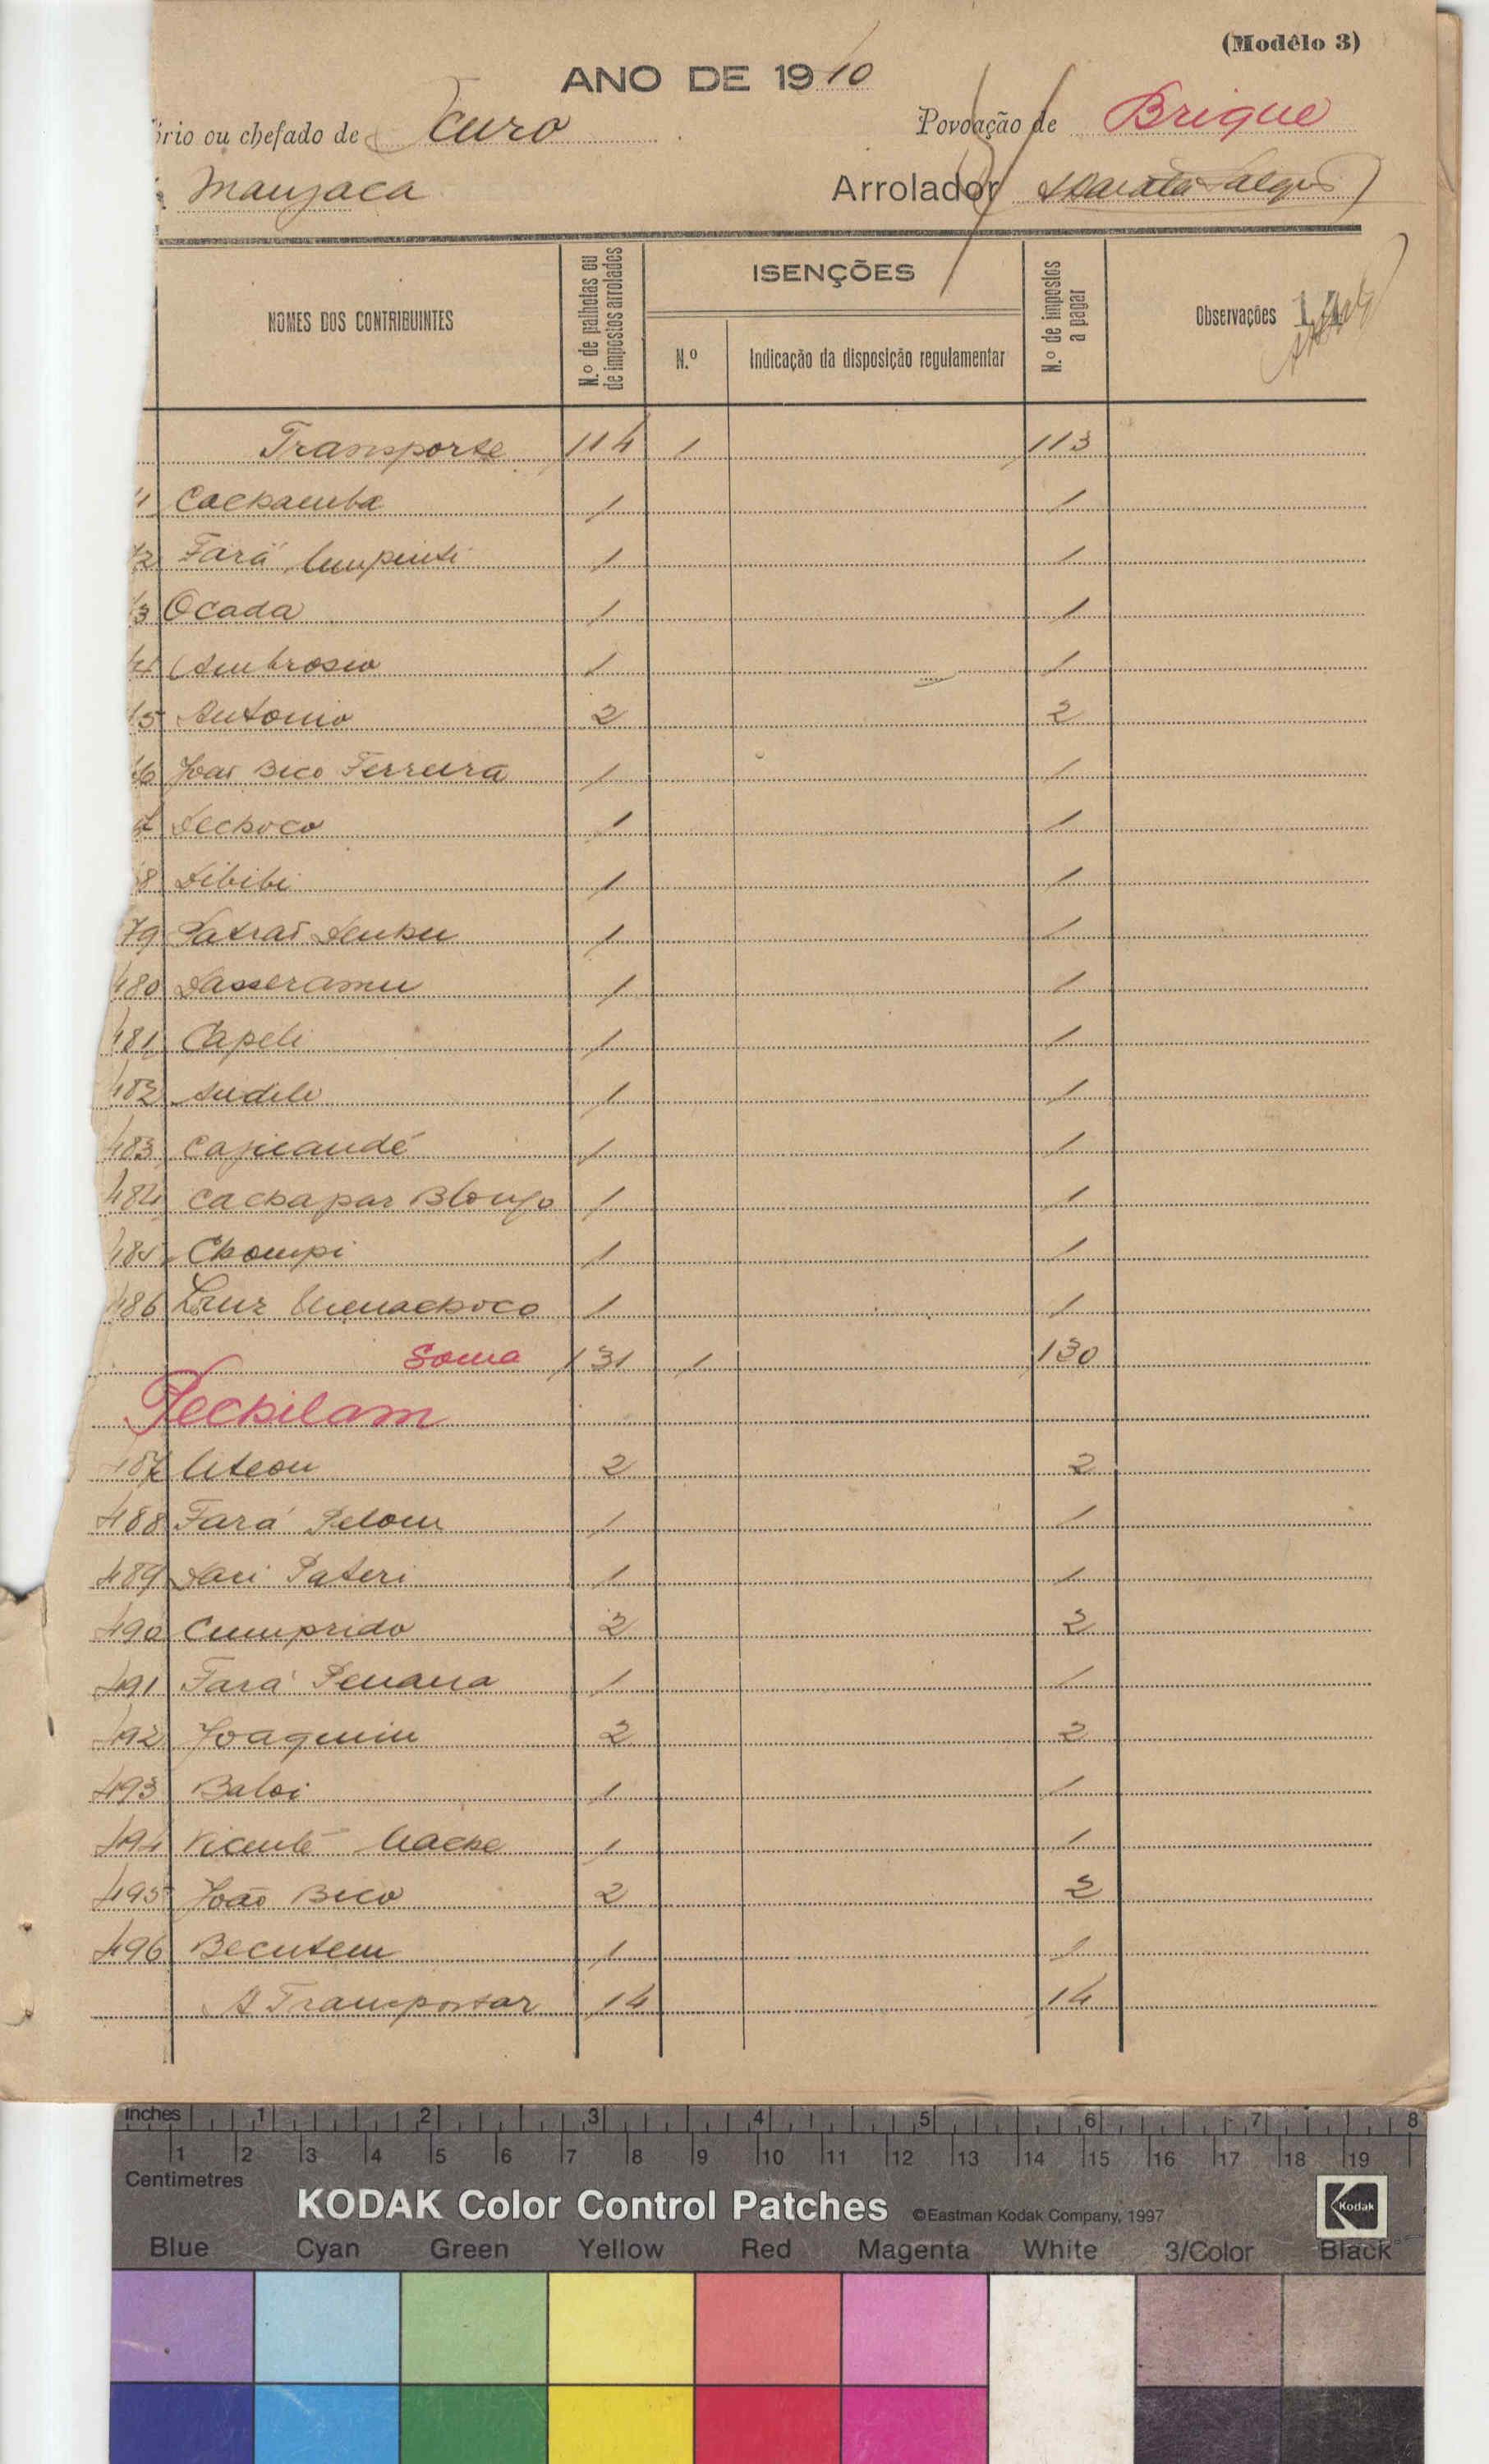 (Modêlo 3)
ANO DE 1910
ório ou chefado de Turo Povoação de Brique
Manjaca Arrolador
NOMES DOS CONTRIBUINTES N.º de palhotas ou de impostos arrolados ISENÇÕES N.º Indicação da disposição regulamentar N.º de impostos a pagar Observações
Transporte 114 1 113
1 Cachamba 1 1
2 Fará 1 1
3 Ocada 1 1
4 Ambrosio 1 1
5 Antonio 2 2
6 João Bico Ferreira 1 1
7 Dechoco 1 1
8 Dibibi 1 1
79 1 1
480 1 1
481 Capeli 1 1
482 1 1
483 1 1
484 Cachapar Blonfo 1 1
485 Chompi 1 1
486 1 1
Soma 131 1 130
Pechilam
487 Uteou 2 2
488 Fará Pelom 1 1
489 Pateri 1 1
490 Cumprido 2 2
491 Fará Penana 1 1
492 Joaquim 2 2
493 Baloi 1 1
494 Vicente Uache 1 1
495 João Bico 2 2
496 Becutem 1 1
A Transportar 14 14
inches 1 2 3 4 5 6 7 8
1 2 3 4 5 6 7 8 9 10 11 12 13 14 15 16 17 18 19
Centimetres
KODAK Color Control Patches ©Eastman Kodak Company, 1997 Kodak
Blue Cyan Green Yellow Red Magenta White 3/Color Black